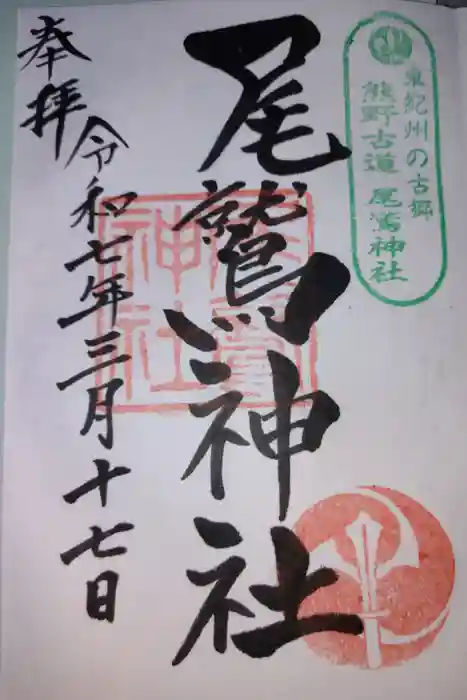 東紀州の古郷
熊野古道 尾鷲神社
尾鷲神社
奉拝 令和七年三月十七日
尾鷲
神社